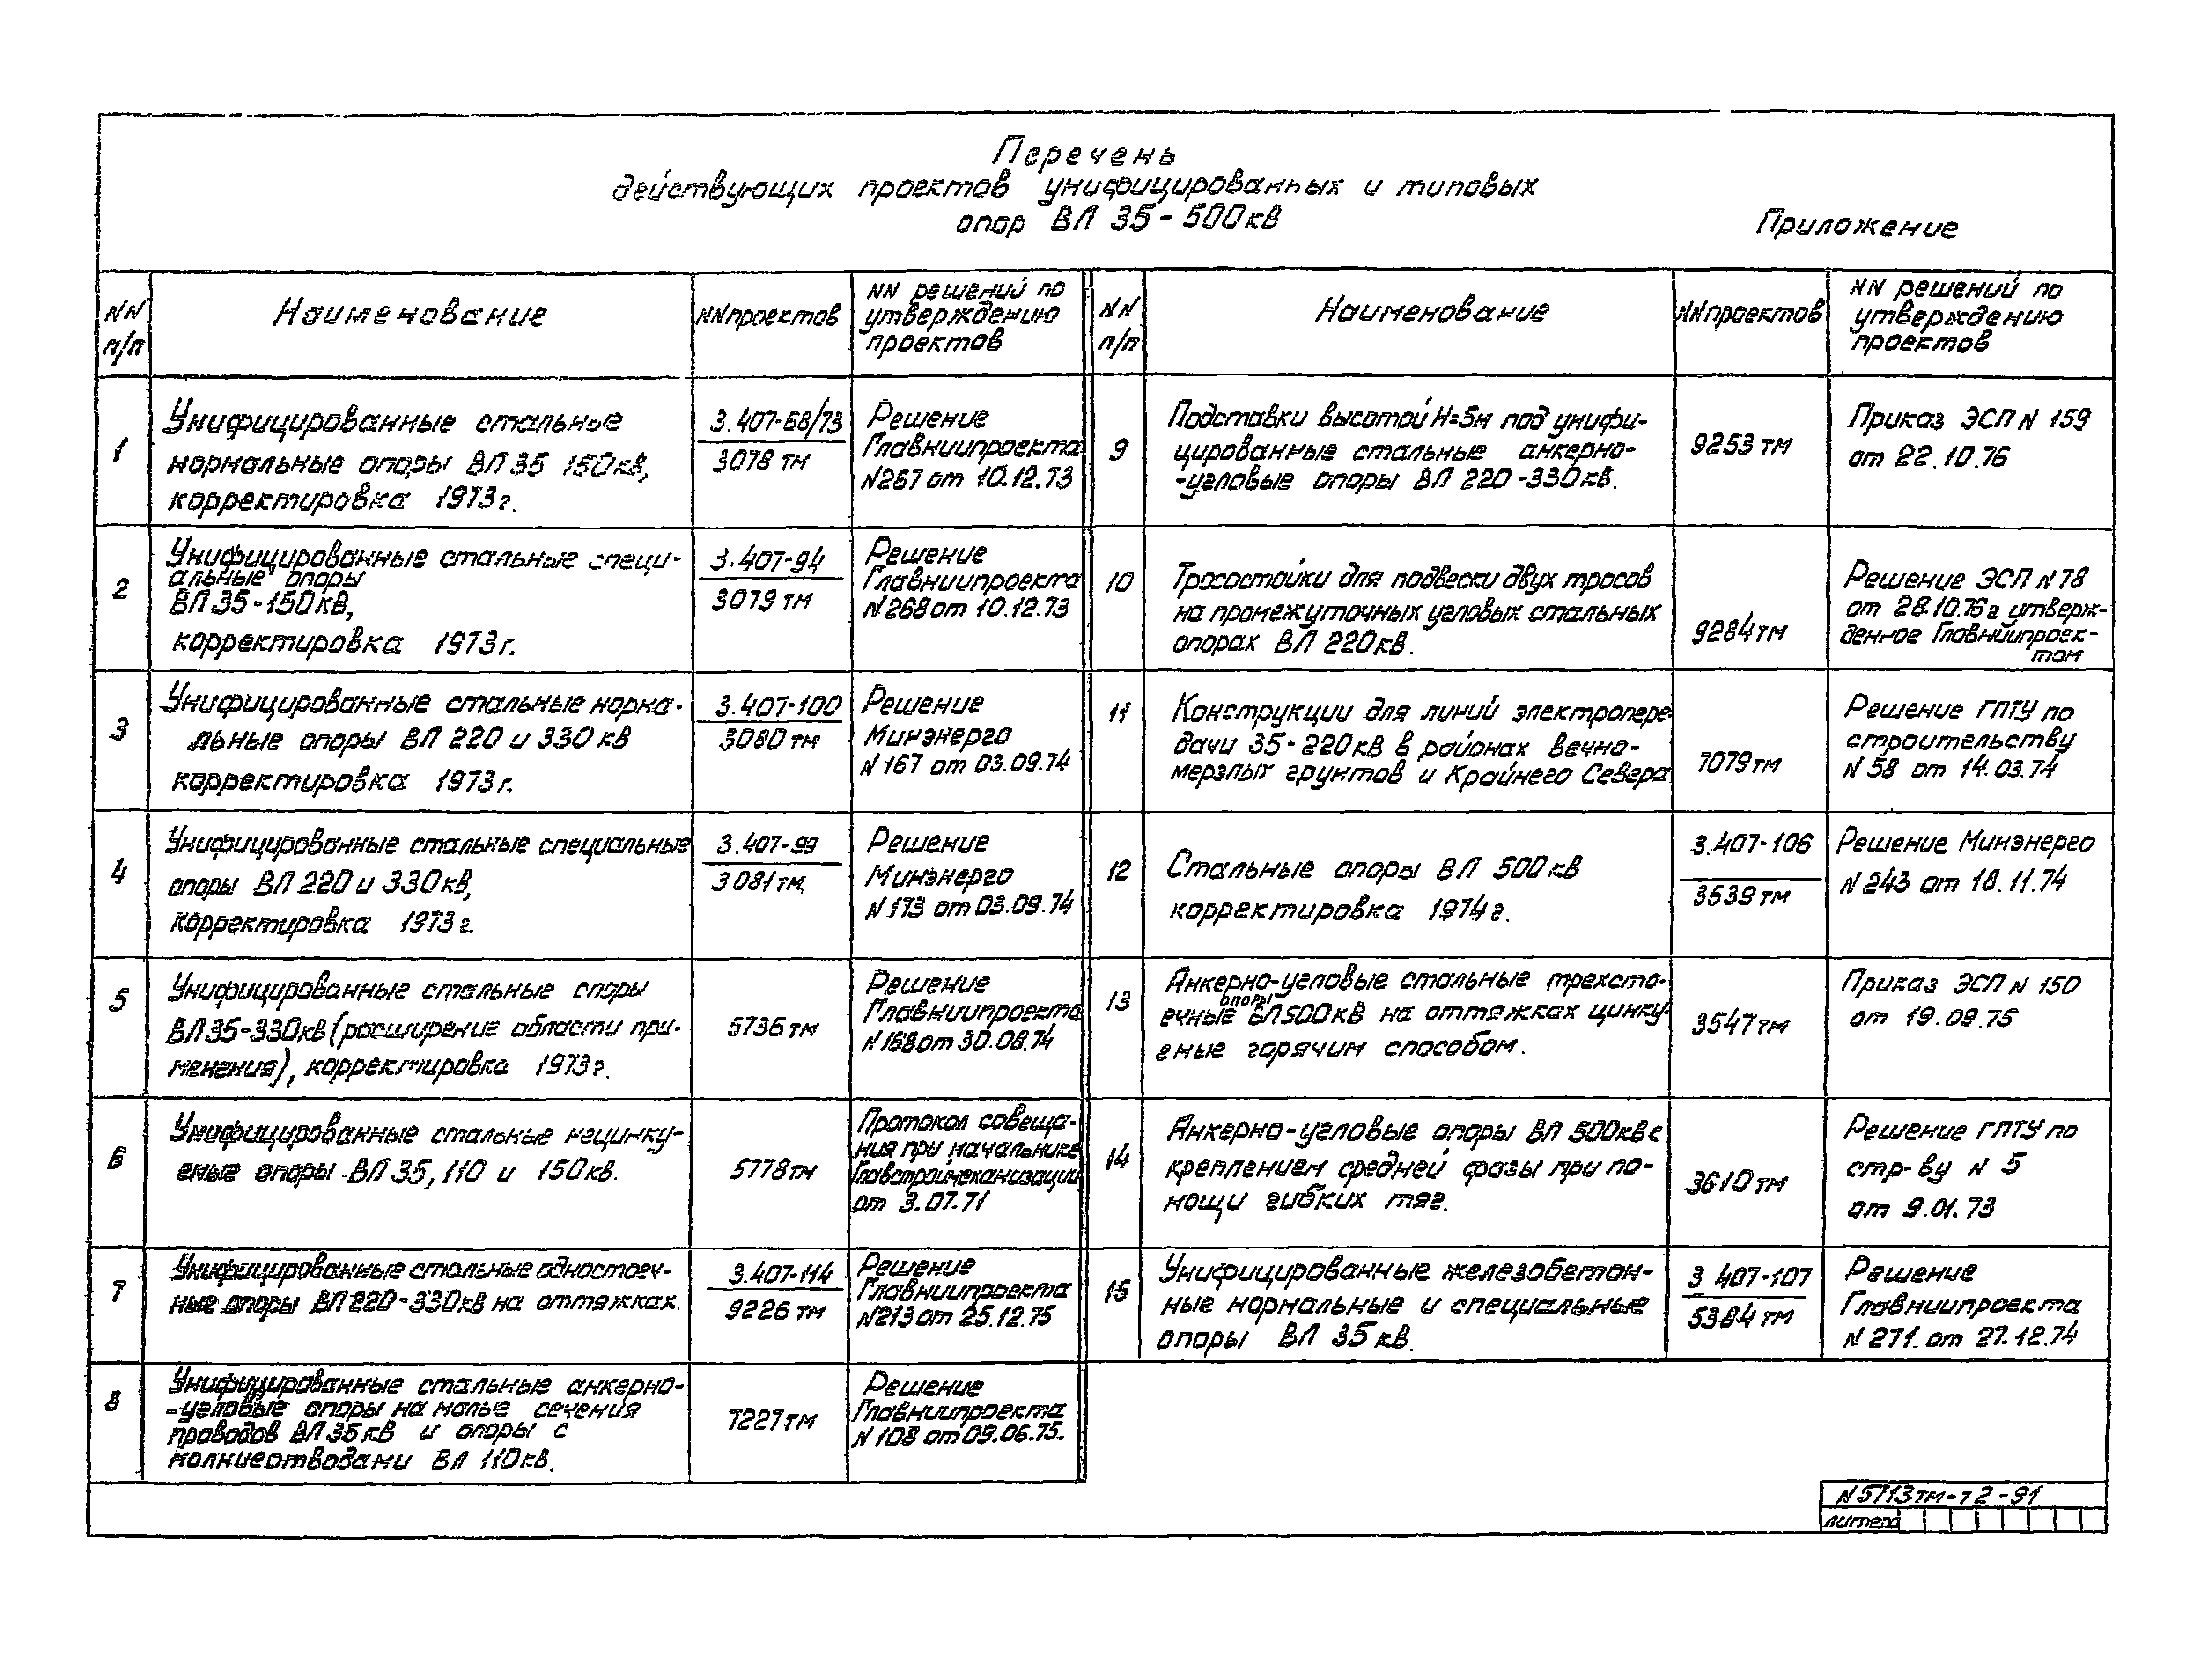 Перечень
действующих проектов унифицированных и типовых
опор ВЛ 35-500кВ
Приложение
NN п/п
Наименование
NN проектов
NN решений по
утверждению
проектов
NN п/п
Наименование
NN проектов
NN решений по
утверждению
проектов
1
Унифицированные стальные
нормальные опоры ВЛ 35 150кВ,
корректировка 1973г.
3.407-68/73
3078 тм
Решение
Главниипроекта
N267 от 10.12.73
2
Унифицированные стальные специ-
альные опоры
ВЛ 35-150кВ,
корректировка 1973г.
3.407-94
3079 тм
Решение
Главниипроекта
N268 от 10.12.73
3
Унифицированные стальные норма-
льные опоры ВЛ 220 и 330 кВ
корректировка 1973г.
3.407-100
3080 тм
Решение
Минэнерго
N 167 от 03.09.74
4
Унифицированные стальные специальные
опоры ВЛ 220 и 330кВ,
корректировка 1973г.
3.407-99
3081 тм.
Решение
Минэнерго
N 173 от 03.09.74
5
Унифицированные стальные опоры
ВЛ 35-330кВ (расширение области при-
менения), корректировка 1973г.
5736 тм
Решение
Главниипроекта
N168 от 30.08.74
6
Унифицированные стальные нецинку-
емые опоры ВЛ 35, 110 и 150кВ.
5778тм
Протокол совеща-
ния при начальнике
Главстроймеханизации
от 3.07.71
7
Унифицированные стальные одностоеч-
ные опоры ВЛ 220-330кВ на оттяжках.
3.407-114
9226 тм
Решение
Главниипроекта
N213 от 25.12.75
8
Унифицированные стальные анкерно-
-угловые опоры на малые сечения
проводов ВЛ 35 кВ и опоры с
молниеотводами ВЛ 110кВ.
7227тм
Решение
Главниипроекта
N 108 от 09.06.75.
9
Подставки высотой Н=5м под унифи-
цированные стальные анкерно-
-угловые опоры ВЛ 220-330кВ.
9253 тм
Приказ ЭСП N 159
от 22.10.76
10
Тросостойки для подвески двух тросов
на промежуточных угловых стальных
опорах ВЛ 220кВ.
9284тм
Решение ЭСП N 78
от 28.10.76г утверж-
денное Главниипроек-
том
11
Конструкции для линий электропере-
дачи 35-220кВ в районах вечно-
мерзлых грунтов и Крайнего Севера
7079тм
Решение ГПТУ по
строительству
N 58 от 14.03.74
12
Стальные опоры ВЛ 500кВ
корректировка 1974г.
3.407-106
3539 тм
Решение Минэнерго
N 243 от 18.11.74
13
Анкерно-угловые стальные трехсто-
ечные опоры ВЛ500кВ на оттяжках цинку-
емые горячим способом.
3547тм
Приказ ЭСП N 150
от 19.09.75
14
Анкерно-угловые опоры ВЛ 500кВ с
креплением средней фазы при по-
мощи гибких тяг.
3610 тм
Решение ГПТУ по
стр-ву N 5
от 9.01.73
15
Унифицированные железобетон-
ные нормальные и специальные
опоры ВЛ 35 кВ.
3 407-107
5384 тм
Решение
Главниипроекта
N 271. от 27.12.74
N 5713тм-т2-91
литера